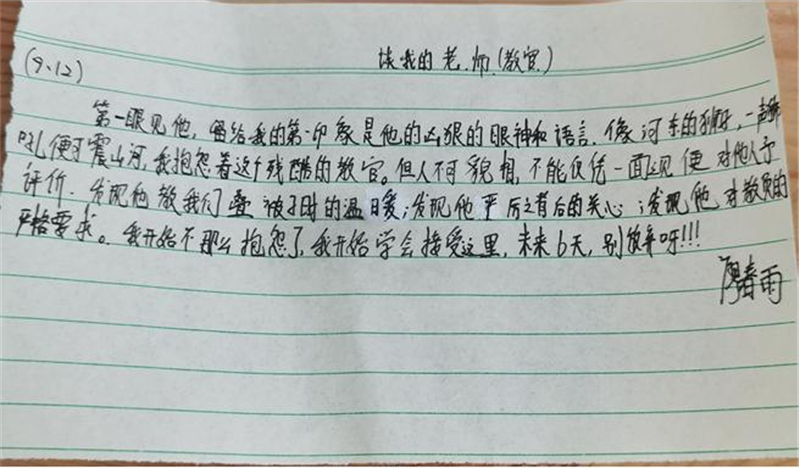 (9.12)
谈我的老师(教官)
第一眼见他，留给我的第一印象是他的凶狠的眼神和语言，像河东的狮子，一声狮
吼便可震山河，我抱怨着这个残酷的教官。但人不可貌相，不能仅凭一面之见便对他人予
评价. 发现他教我们叠被子时的温暖;发现他严厉之背后的关心;发现他对教员的
严格要求。我开始不那么抱怨了，我开始学会接受这里，未来6天，别放弃呀!!!
廖春雨